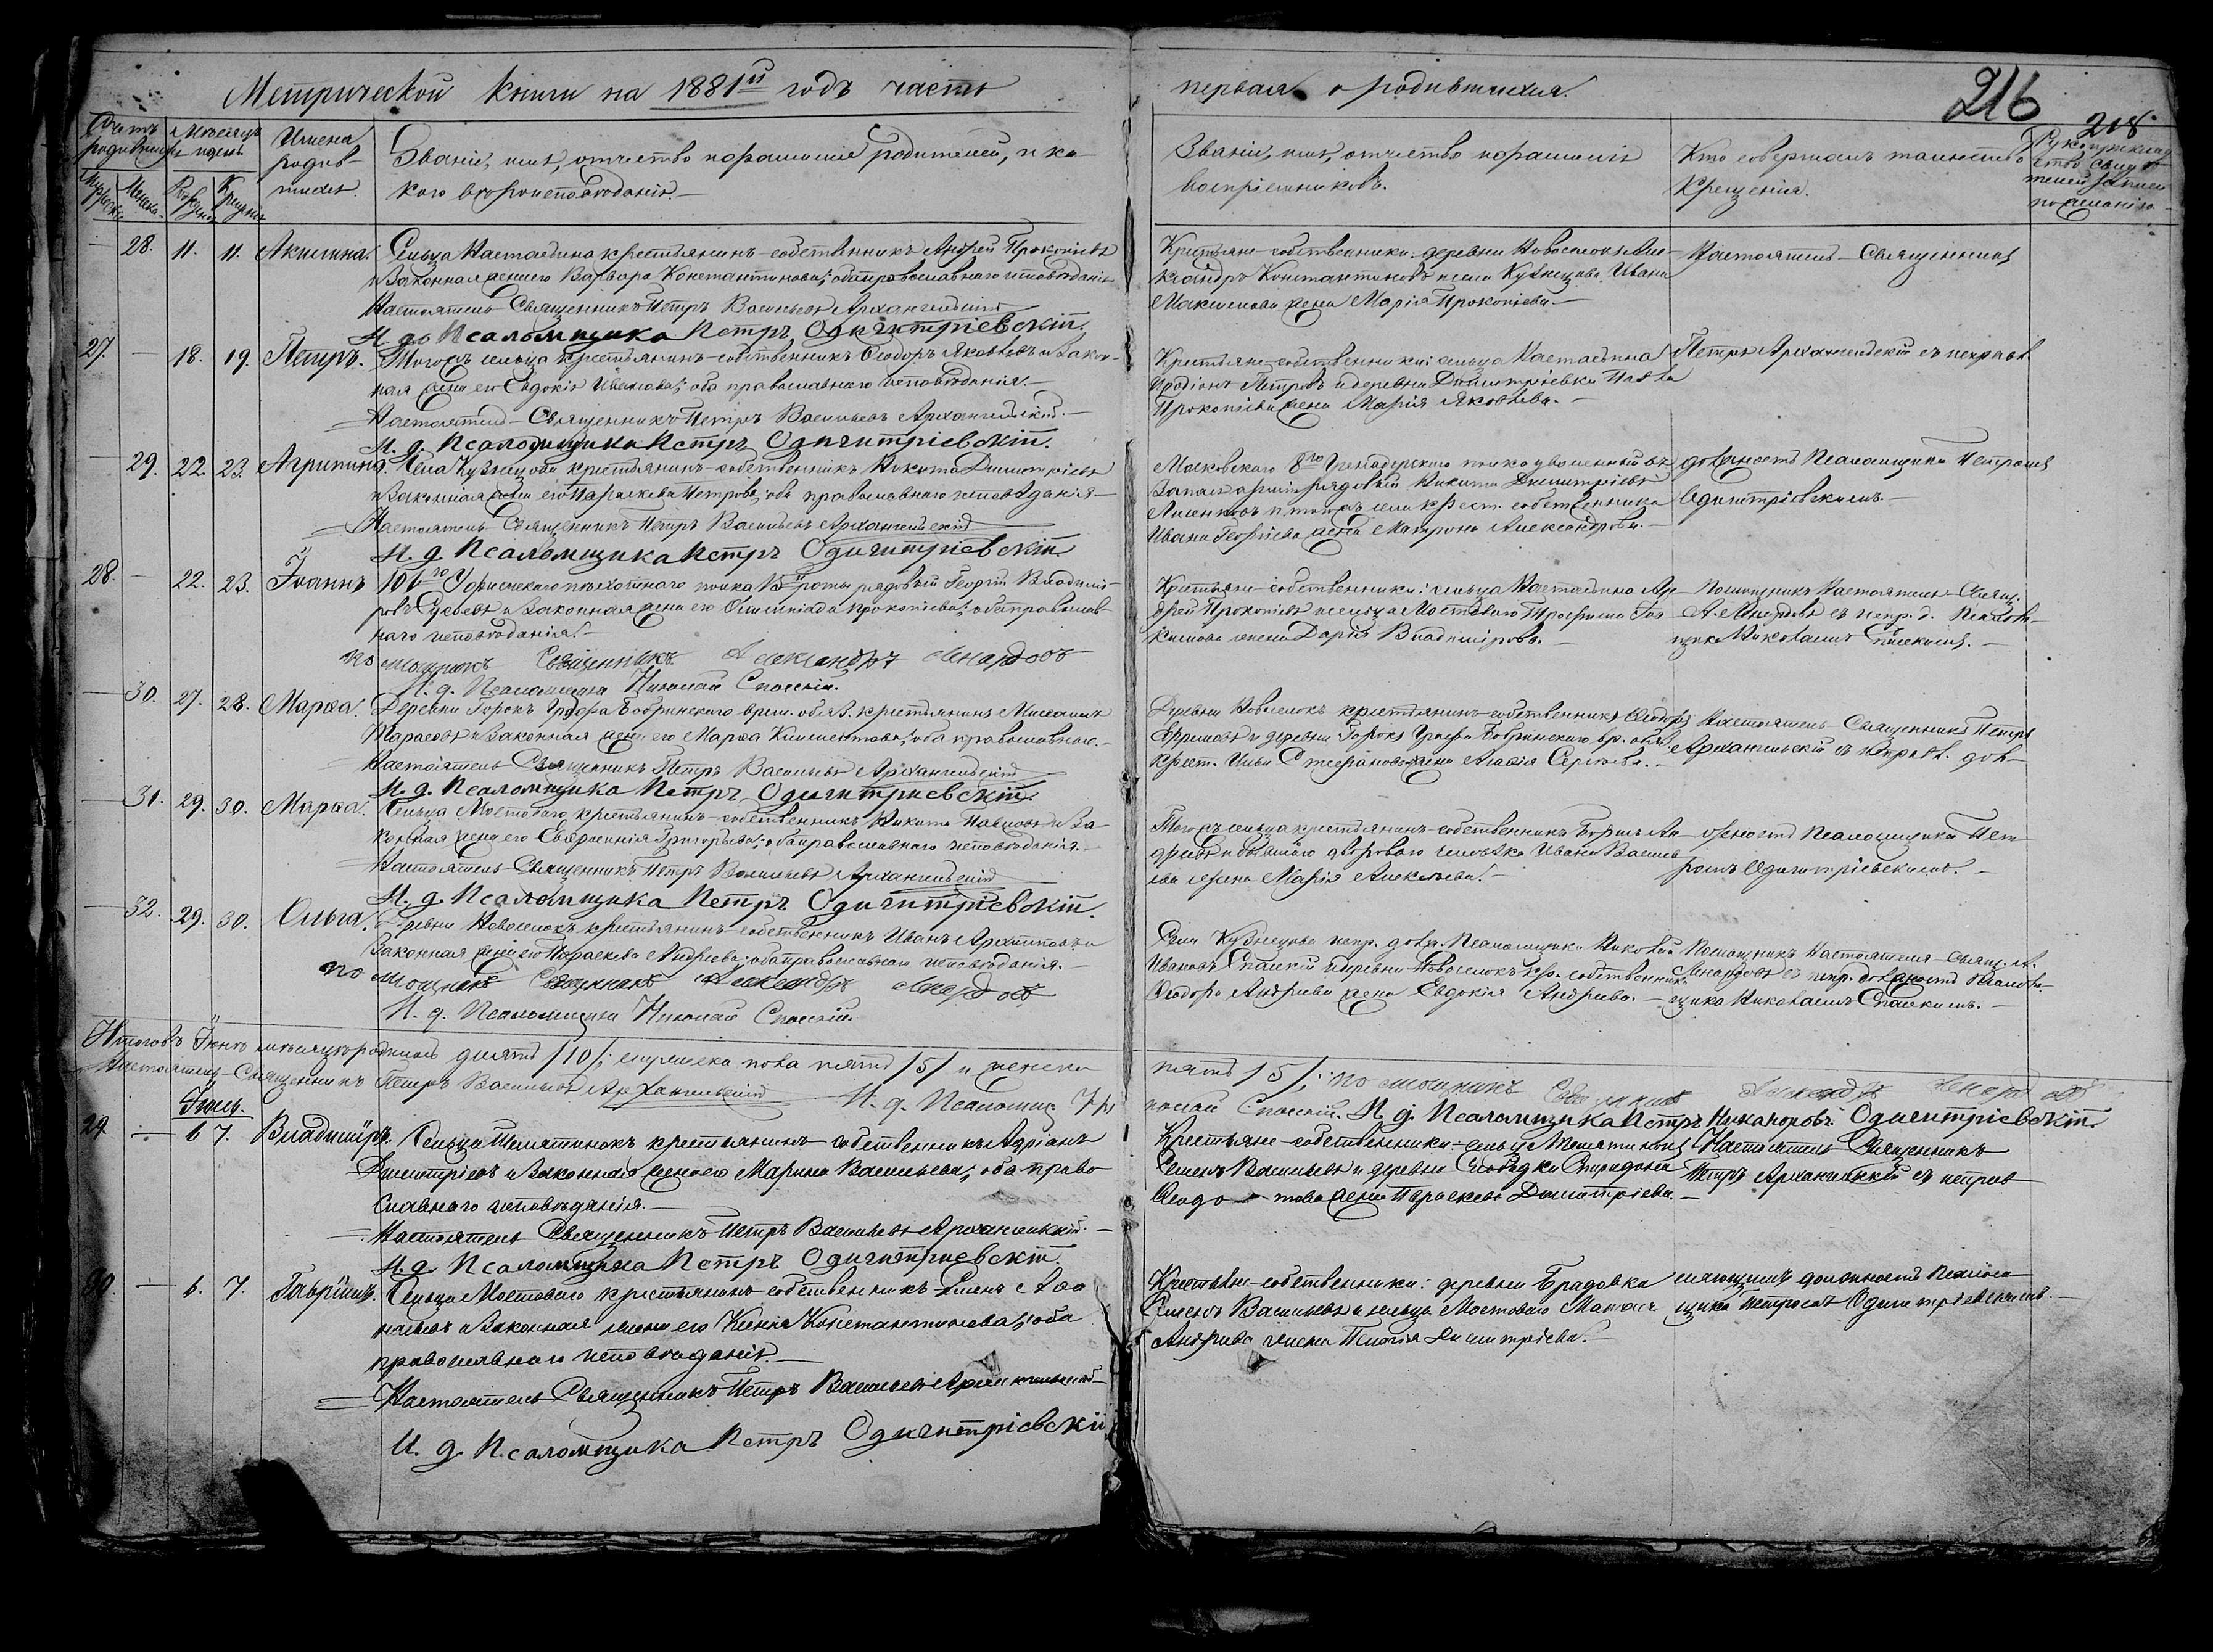 Метрической книги на 1881й годъ часть
первая о родившихся.
216
218
Счетъ родившихся
Мѣсяцъ и день
Имена родившихся.
Званіе, имя, отчество и фамилія родителей, и какого вѣроисповѣданія.
Званіе, имя, отчество и фамилія воспріемниковъ.
Кто совершалъ таинство крещенія.
Рукоприкладство свидѣтелей записи по желанію
28. 11. 11. Акилина.
Сельца Настасьина крестьянинъ-собственникъ Андрей Прокопіевъ
и законная жена его Варвара Константинова; оба православнаго исповѣданія
Настоятель-Священникъ Петръ Васильевъ Архангельскій
И. д. Псаломщика Петръ Одигитріевскій.
Крестьяне-собственники: деревни Новоселокъ Алек-
сандръ Константиновъ и села Кузнецова Ивана
Максимова жена Марія Прокопіева.
Настоятель-Священникъ
27. — 18. 19. Петръ.
Тогожъ сельца крестьянинъ-собственникъ Ѳеодоръ Яковлевъ и закон-
ная жена его Евдокія Иванова; оба православнаго исповѣданія.
Настоятель-Священникъ Петръ Васильевъ Архангельскій.
И. д. Псаломщика Петръ Одигитріевскій.
Крестьяне-собственники: сельца Настасьина
Иродіонъ Петровъ и деревни Димитріевки Павла
Прокопіева жена Марія Яковлева.
Петръ Архангельскій съ исправл.
29. 22. 23. Агрипина.
Села Кузнецова крестьянинъ-собственникъ Никита Димитріевъ
и законная жена его Параскева Петрова; оба православнаго исповѣданія
Настоятель-Священникъ Петръ Васильевъ Архангельскій
И. д. Псаломщика Петръ Одигитріевскій.
Московскаго 8го Гренадерскаго полка уволенный въ
запасъ арміи рядовый Никита Димитріевъ
и тогожъ села крест. собственника
Ивана Георгіева жена Матрона Александрова.
должность Псаломщика Петромъ
Одигитріевскимъ.
28. — 22. 23. Іоаннъ
106го Уфимскаго пѣхотнаго полка 15й роты рядовый Георгій Владимі-
ровъ и законная жена его Олимпіада Прокопіева; оба православ-
наго исповѣданія.
Помощникъ Священникъ Александръ
И. д. Псаломщика Николай Спасскій.
Крестьяне-собственники: сельца Настасьина Ан-
дрей Прокопіевъ и сельца Мостоваго Трофима Іоа-
кимова жена Дарія Владимірова.
Помощникъ Настоятеля-Свящ.
съ испр. д. Псалом-
щика Николаемъ Спасскимъ.
30. 27. 28. Марѳа.
Деревни Горокъ Графа Бобринскаго врем. обяз. крестьянинъ
Тарасовъ и законная жена его Марѳа Климентова; оба православнаго.
Настоятель-Священникъ Петръ Васильевъ Архангельскій
И. д. Псаломщика Петръ Одигитріевскій.
Деревни Новоселокъ крестьянинъ-собственникъ Ѳеодоръ
Ефремовъ и деревни Горокъ Графа Бобринскаго вр. обяз.
крест. Ильи Стефанова жена Агаѳія Сергѣева.
Настоятель-Священникъ Петръ
Архангельскій съ исправл. дол-
31. 29. 30. Марѳа.
Сельца Мостоваго крестьянинъ-собственникъ Никита Павловъ и за-
конная жена его Евфросинія Григорьева; оба православнаго исповѣданія.
Настоятель-Священникъ Петръ Васильевъ Архангельскій
И. д. Псаломщика Петръ Одигитріевскій.
Тогожъ сельца крестьянинъ-собственникъ Борисъ Ан-
дреевъ и бывшаго двороваго человѣка Ивана Василь-
ева жена Марія Алексѣева.
жность Псаломщика Пет-
ромъ Одигитріевскимъ.
32. 29. 30. Ольга.
Деревни Новоселокъ крестьянинъ-собственникъ Иванъ Архиповъ и
законная жена его Параскева Андреева; оба православнаго исповѣданія.
Помощникъ Священникъ Александръ
И. д. Псаломщика Николай Спасскій.
Села Кузнецова испр. долж. Псаломщика Николай
Ивановъ Спасскій и деревни Новоселокъ кр. собственника
Ѳеодора Андреева жена Евдокія Андреева.
Помощникъ Настоятеля-Свящ. А.
съ испр. должность Псалом-
щика Николаемъ Спасскимъ.
Итого въ Іюнѣ мѣсяцѣ родилось десять /10/; мужеска пола пять /5/ и женска
пять /5/. Помощникъ Священникъ Александръ
Настоятель-Священникъ Петръ Васильевъ Архангельскій И. д. Псаломщ. Ни-
колай Спасскій. И. д. Псаломщика Петръ Никаноровъ Одигитріевскій.
Іюль.
29. — 6 7. Владиміръ.
Сельца крестьянинъ-собственникъ Адріанъ
Димитріевъ и законная жена его Марина Васильева; оба право-
славнаго исповѣданія.
Настоятель-Священникъ Петръ Васильевъ Архангельскій.
И. д. Псаломщика Петръ Одигитріевскій.
Крестьяне-собственники: сельца
Семенъ Васильевъ и деревни Слободки Спиридона
жена Параскева Димитріева.
Настоятель Священникъ
Петръ Архангельскій съ исправ
30. — 6. 7. Гавріилъ.
Сельца Мостоваго крестьянинъ-собственникъ
и законная жена его Ксенія Константинова; оба
православнаго исповѣданія.
Настоятель Священникъ Петръ Васильевъ Архангельскій
И. д. Псаломщика Петръ Одигитріевскій
Крестьяне-собственники: деревни
Семенъ Васильевъ и сельца Мостоваго
Андреева жена Пелагія Димитріева.
ляющимъ должность Псалом-
щика Петромъ Одигитріевскимъ.